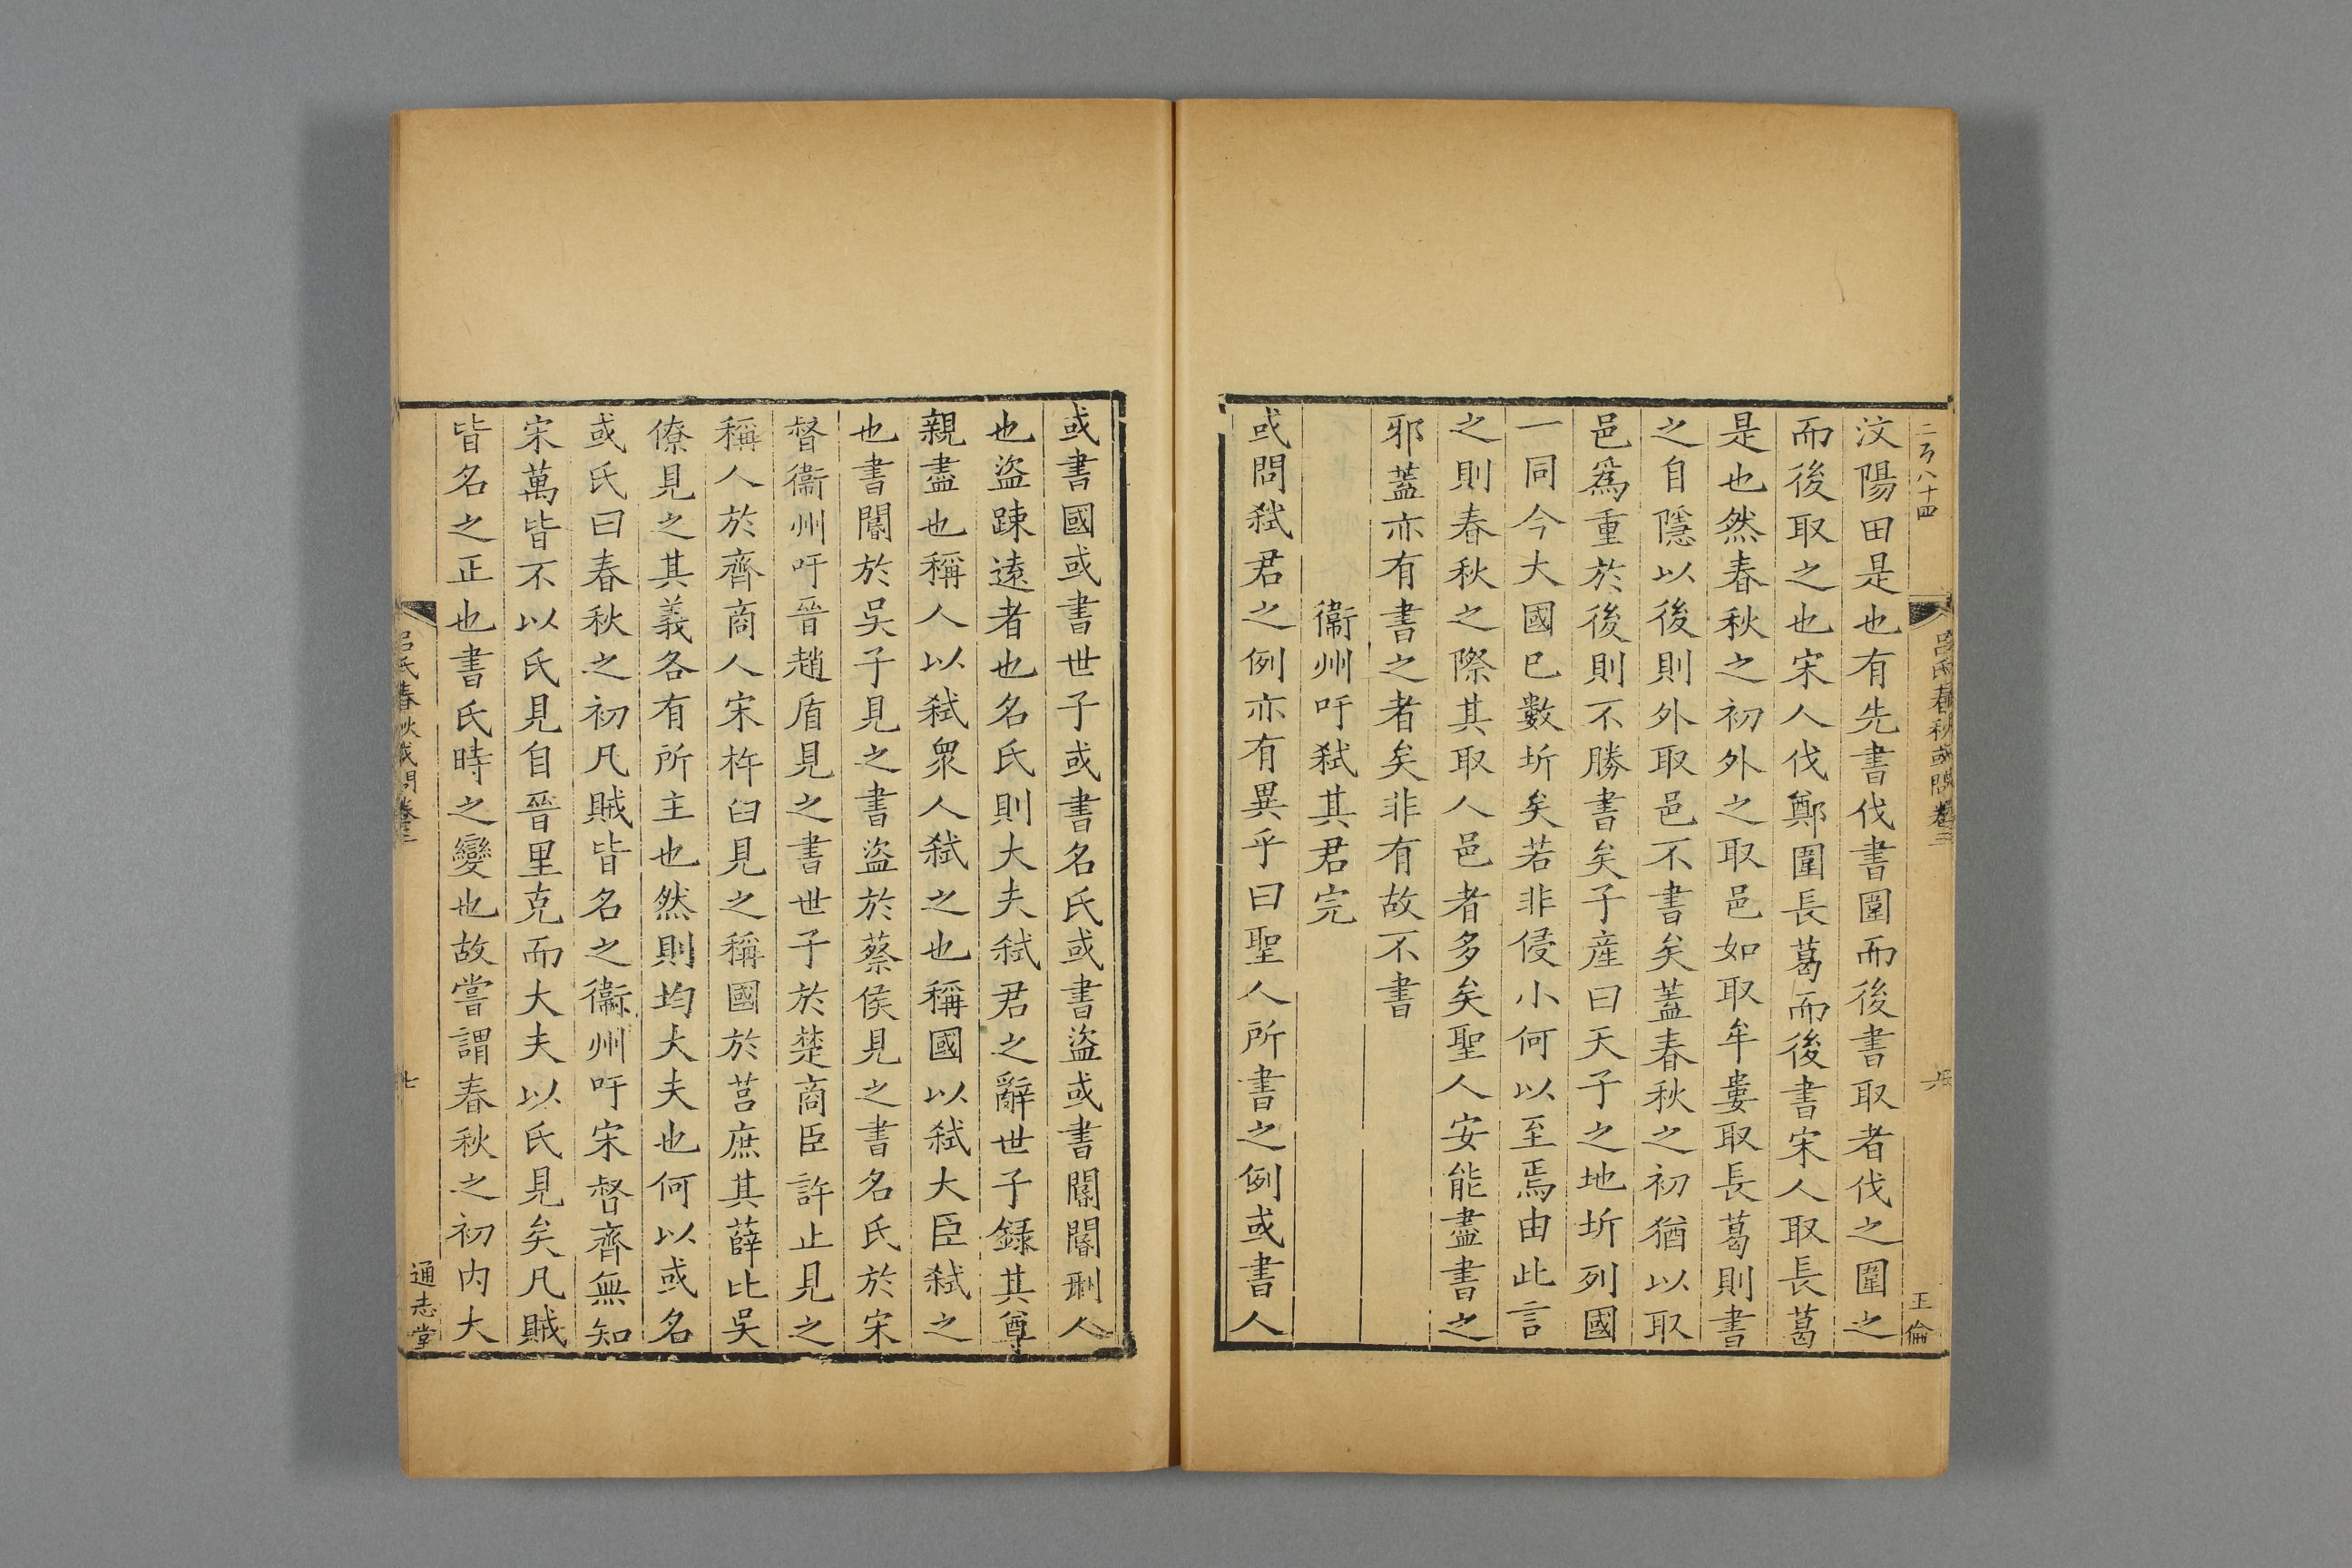 二百八十四
呂氏春秋或問卷三
六
王倫
汶陽田是也有先書伐書圍而後書取者伐之圍之
而後取之也宋人伐鄭圍長葛而後書宋人取長葛
是也然春秋之初外之取邑如取牟婁取長葛則書
之自隱以後則外取邑不書矣蓋春秋之初猶以取
邑爲重於後則不勝書矣子産曰天子之地圻列國
一同今大國已數圻矣若非侵小何以至焉由此言
之則春秋之際其取人邑者多矣聖人安能盡書之
邪蓋亦有書之者矣非有故不書
衞州吁弑其君完
或問弑君之例亦有異乎曰聖人所書之例或書人
或書國或書世子或書名氏或書盗或書閽閽刑人
也盗踈遠者也名氏則大夫弑君之辭世子録其尊
親盡也稱人以弑衆人弑之也稱國以弑大臣弑之
也書閽於吳子見之書盗於蔡侯見之書名氏於宋
督衞州吁晉趙盾見之書世子於楚商臣許止見之
稱人於齊商人宋杵臼見之稱國於莒庶其薛比吳
僚見之其義各有所主也然則均大夫也何以或名
或氏曰春秋之初凡賊皆名之衞州吁宋督齊無知
宋萬皆不以氏見自晉里克而大夫以氏見矣凡賊
皆名之正也書氏時之變也故嘗謂春秋之初内大
呂氏春秋或問卷三
七
通志堂